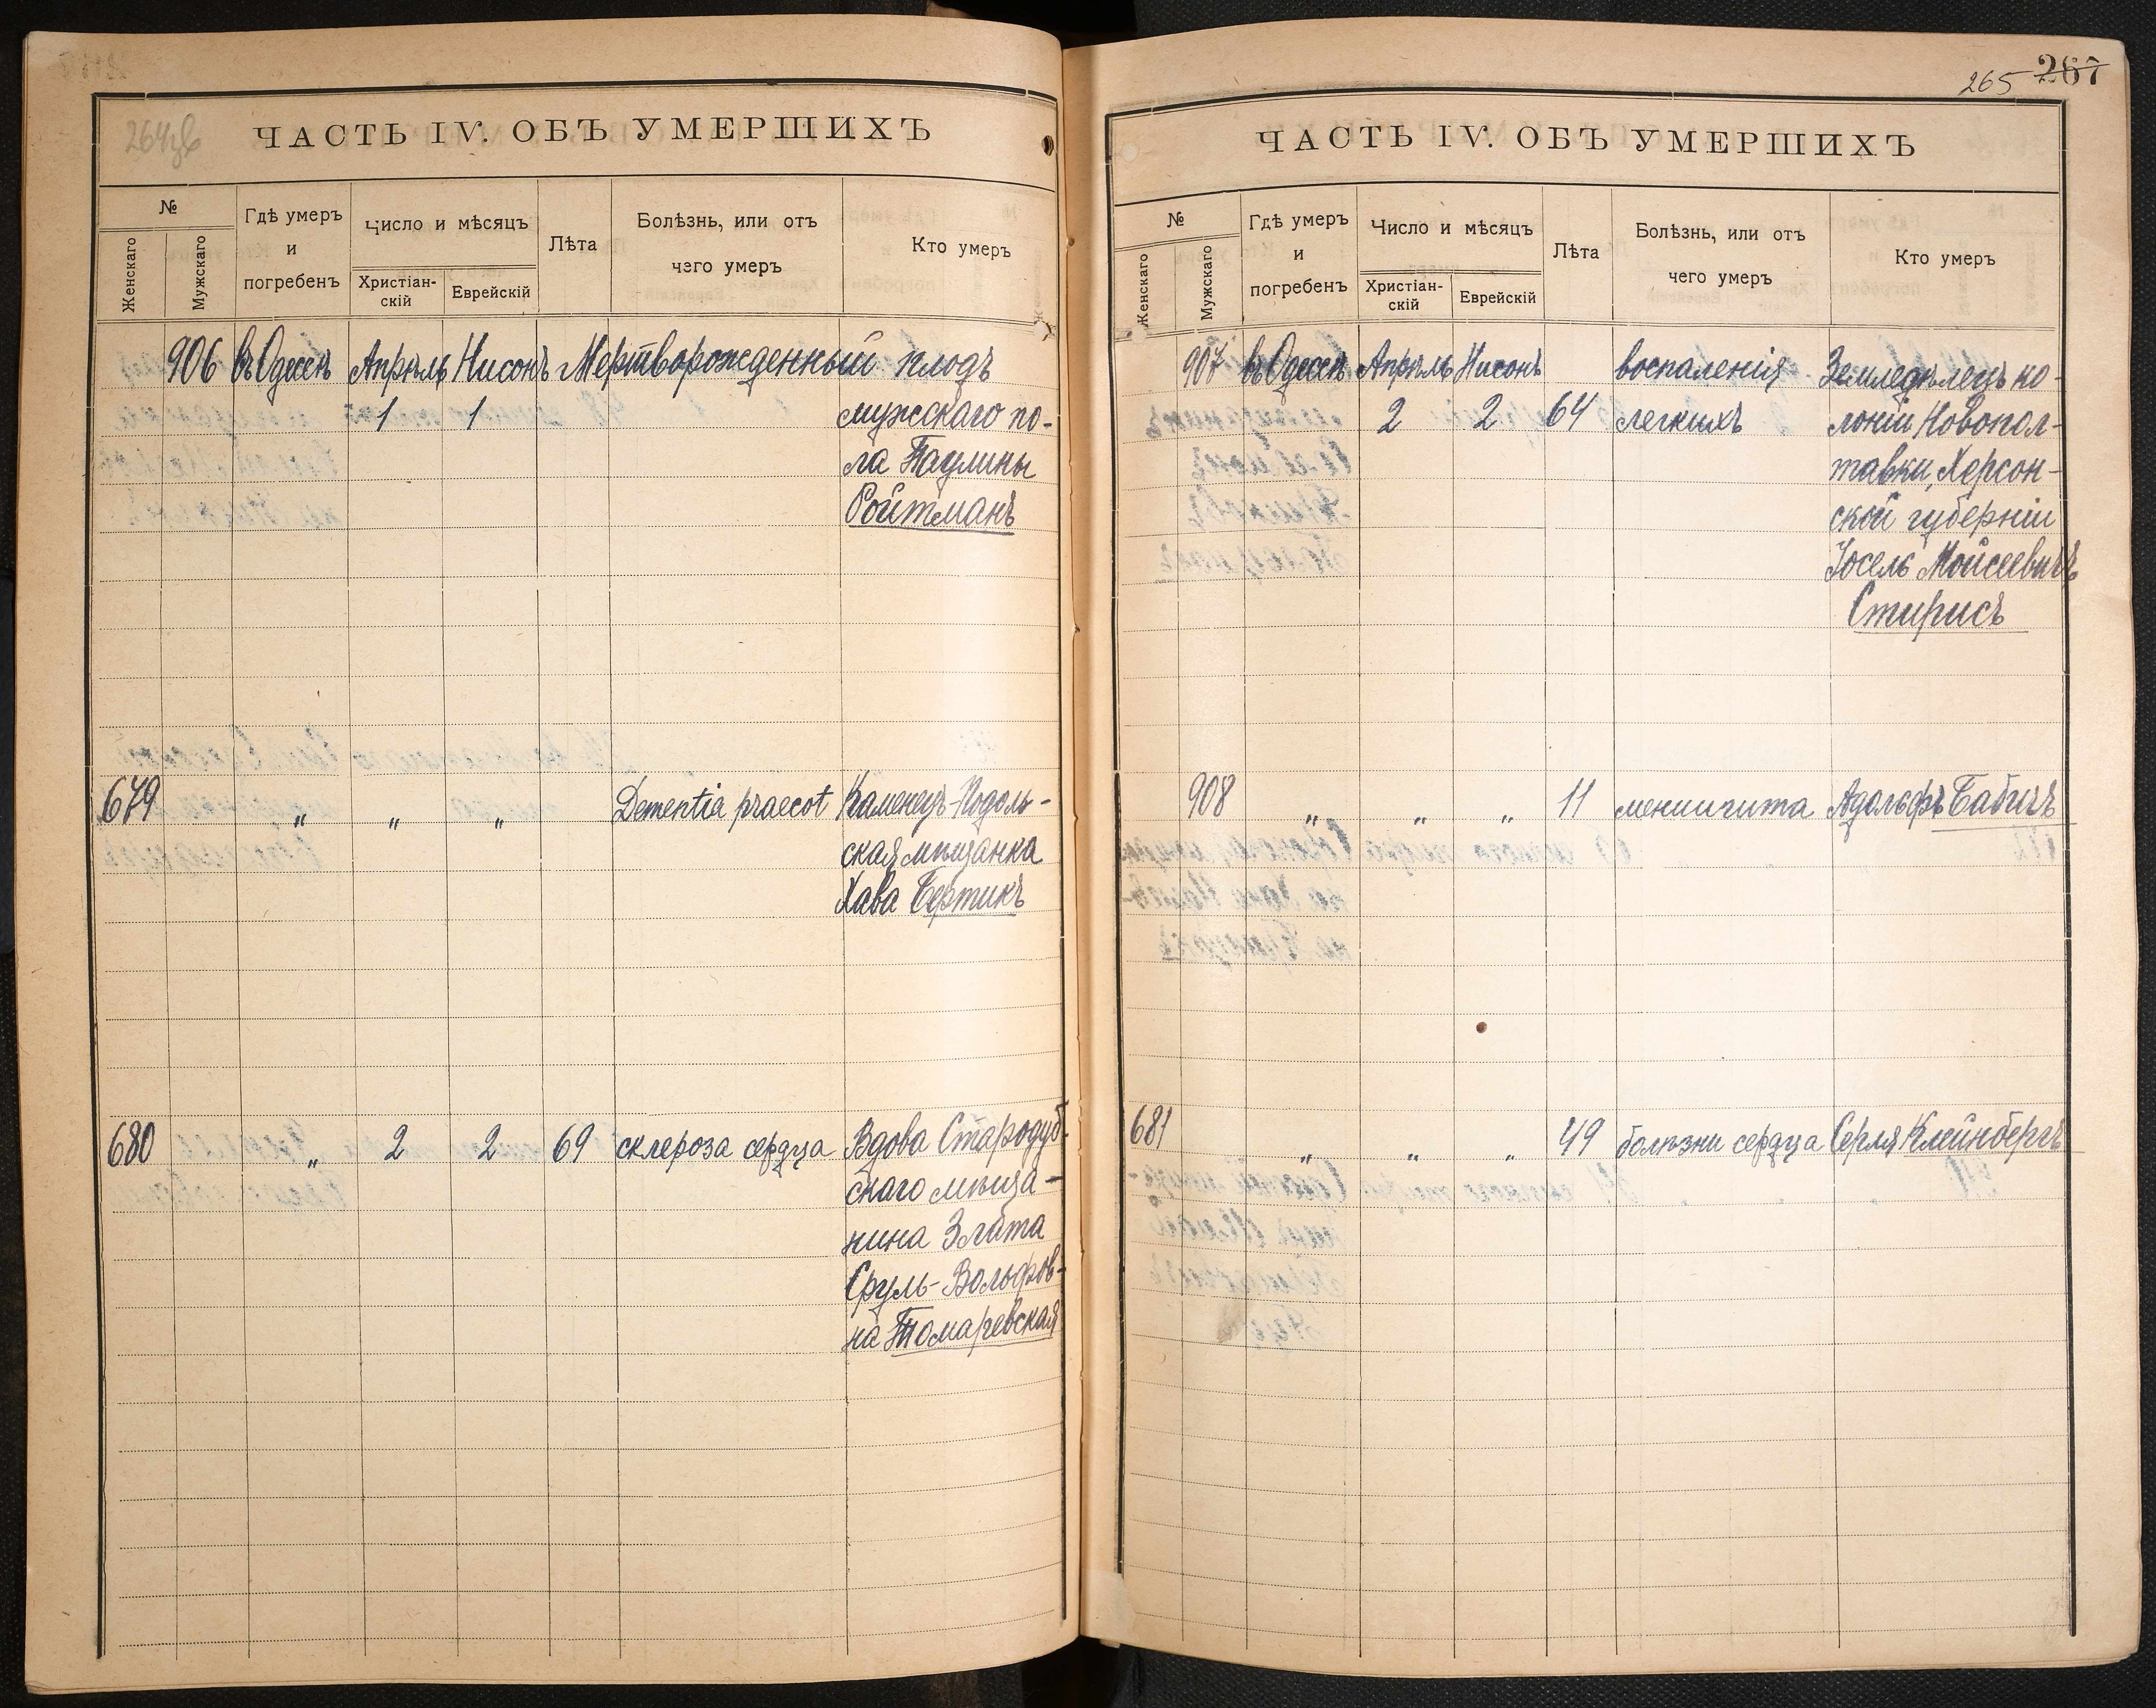 264 зв
ЧАСТЬ IV. ОБЪ УМЕРШИХЪ
№
Женскаго
Мужскаго
Гдѣ умеръ
и
погребенъ
Число и мѣсяцъ
Христіан-
скій
Еврейскій
Лѣта
Болѣзнь, или отъ
чего умеръ
Кто умеръ
906 въ Одессѣ Апрѣль Нисонъ Мертворожденный плодъ
1 1 мужскаго по-
ла Паулины
Ройтманъ
679 " " " Dementia praecot Каменецъ-Подоль-
ская мѣщанка
Хава Бертикъ
680 " 2 2 69 склероза сердца Вдова Стародуб-
скаго мѣща-
нина Злата
Сруль-Вольфов-
на Томаревская
265 267
ЧАСТЬ IV. ОБЪ УМЕРШИХЪ
№
Женскаго
Мужскаго
Гдѣ умеръ
и
погребенъ
Число и мѣсяцъ
Христіан-
скій
Еврейскій
Лѣта
Болѣзнь, или отъ
чего умеръ
Кто умеръ
907 въ Одессѣ Апрѣль Нисонъ воспаленія Земледѣлецъ ко-
2 2 64 легкихъ лоніи Новопол-
тавки, Херсон-
ской губерніи
Іосель Мойсеевичъ
Стирисъ
908 " " " 11 менингита Адольфъ Бабичъ
681 " " " 49 болѣзни сердца Серля Клейнбергъ